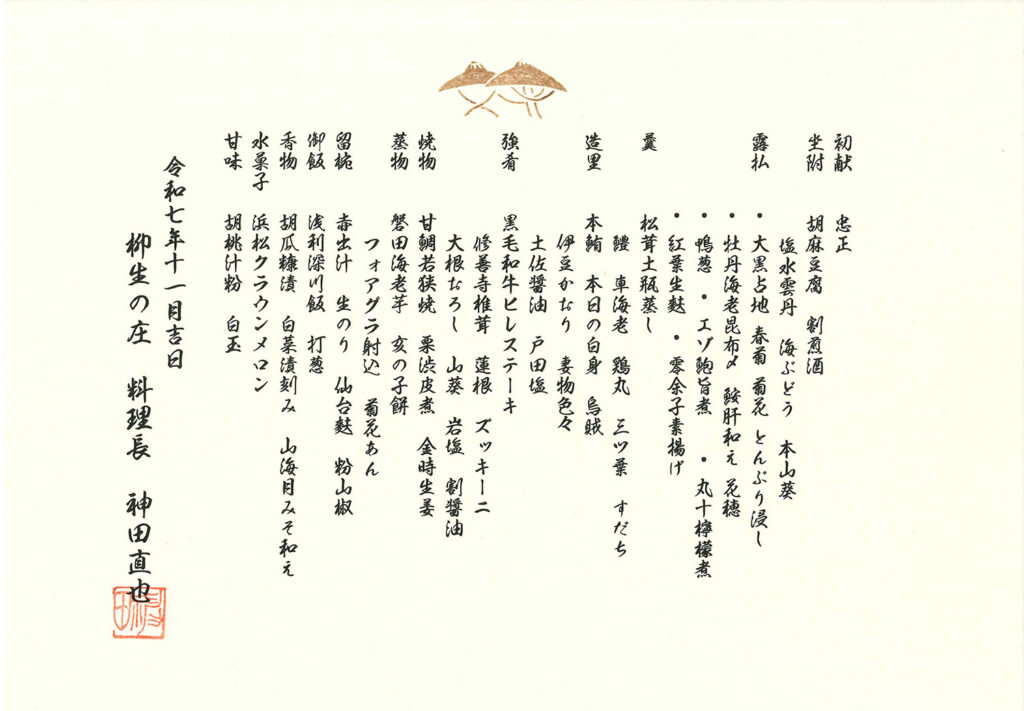 初献　忠正
坐附　胡麻豆腐　割煎酒
塩水雲丹　海ぶどう　本山葵
露払　・大黒占地　春菊　菊花　とんぶり浸し
・牡丹海老昆布〆　鮟肝和え　花穂
・鴨葱　・エゾ鮑旨煮　・丸十檸檬煮
・紅葉生麩　・零余子素揚げ
羹　松茸土瓶蒸し
鱧　車海老　鶏丸　三ツ葉　すだち
造里　本鮪　本日の白身　烏賊
伊豆かおり　妻物色々
土佐醤油　戸田塩
強肴　黒毛和牛ヒレステーキ
修善寺椎茸　蓮根　ズッキーニ
大根おろし　山葵　岩塩　割醤油
焼物　甘鯛若狭焼　栗渋皮煮　金時生姜
蒸物　磐田海老芋　亥の子餅
フォアグラ射込　菊花あん
留椀　赤出汁　生のり　仙台麩　粉山椒
御飯　浅利深川飯　打葱
香物　胡瓜糠漬　白菜漬刻み　山海月みそ和え
水菓子　浜松クラウンメロン
甘味　胡桃汁粉　白玉
令和七年十一月吉日
柳生の庄　料理長　神田直也